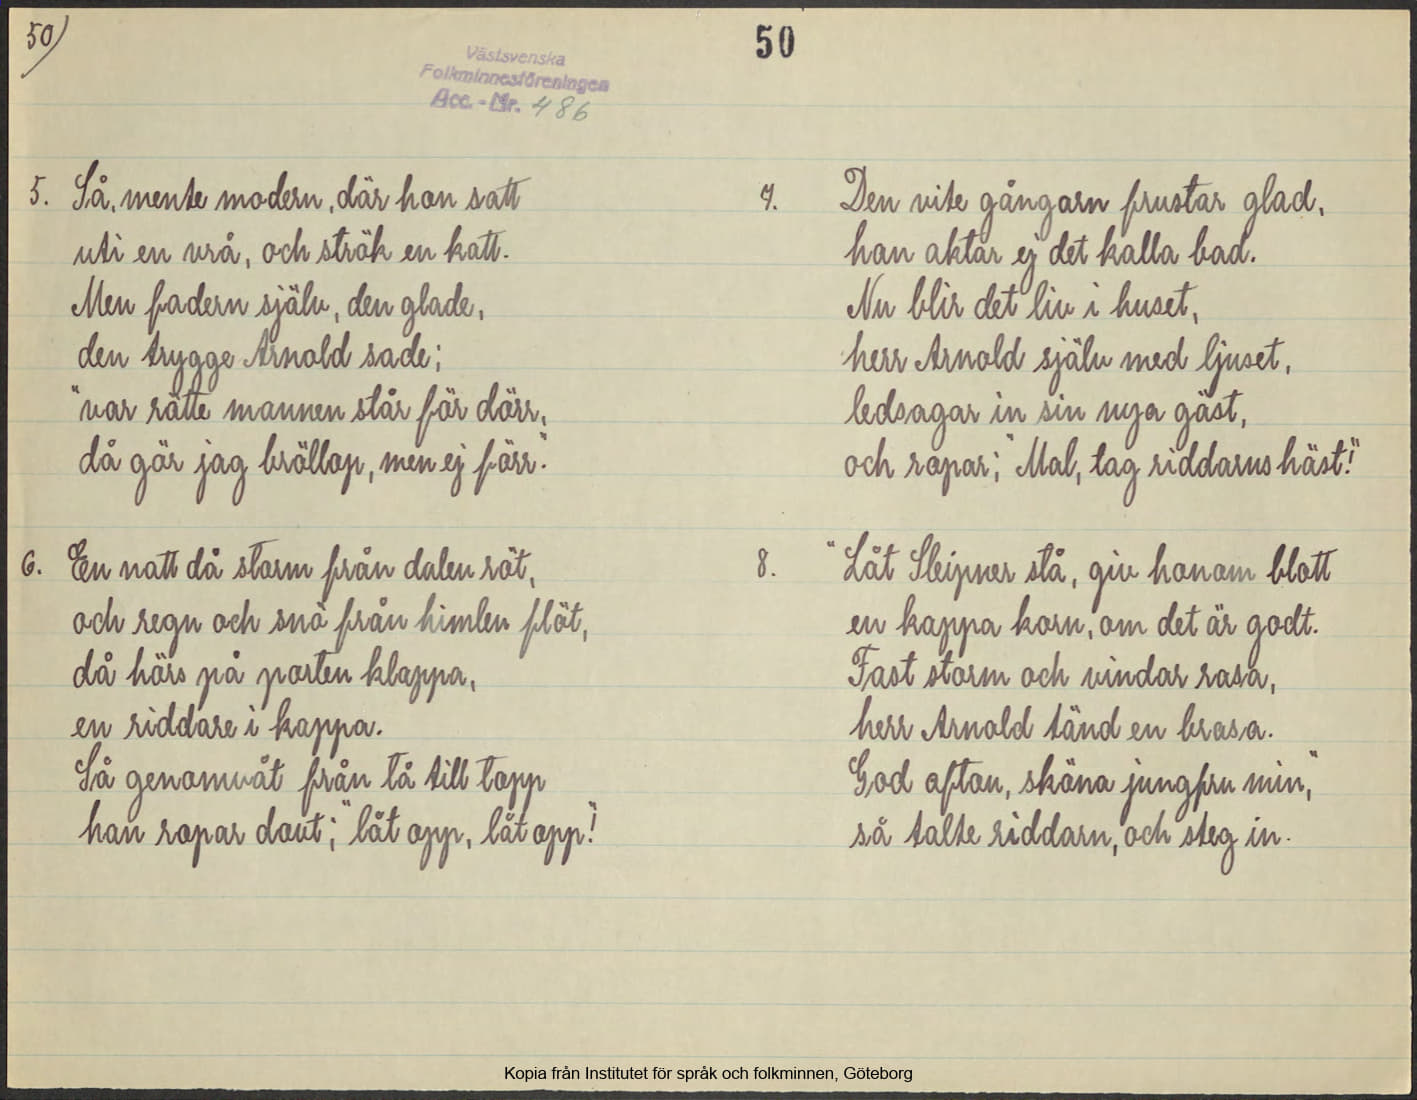 50)
50
Västsvenska
Folkminnesföreningen
Acc.-Nr. 486
5. Så, mente modern, där hon satt
uti en vrå, och strök en katt.
Men fadern själv, den glade,
den trygge Arnold sade;
"var rätte mannen står för dörr,
då gör jag bröllop, men ej förr."
6. En natt då storm från dalen röt,
och regn och snö från himlen flöt,
då hörs på porten klappa,
en riddare i kappa.
Så genomvåt från tå till topp
han ropar dovt; "låt opp, låt opp"!
7. Den vite gångarn frustar glad,
han aktar ej det kalla bad.
Nu blir det liv i huset,
herr Arnold själv med ljuset,
ledsagar in sin nya gäst,
och ropar; "Mal, tag riddarns häst!"
8. "Låt Sleipner stå, giv honom blott
en kappa korn, om det är godt.
Fast storm och vindar rasa,
herr Arnold tänd en brasa.
God afton, sköna jungfru min,"
så talte riddarn, och steg in.
Kopia från Institutet för språk och folkminnen, Göteborg